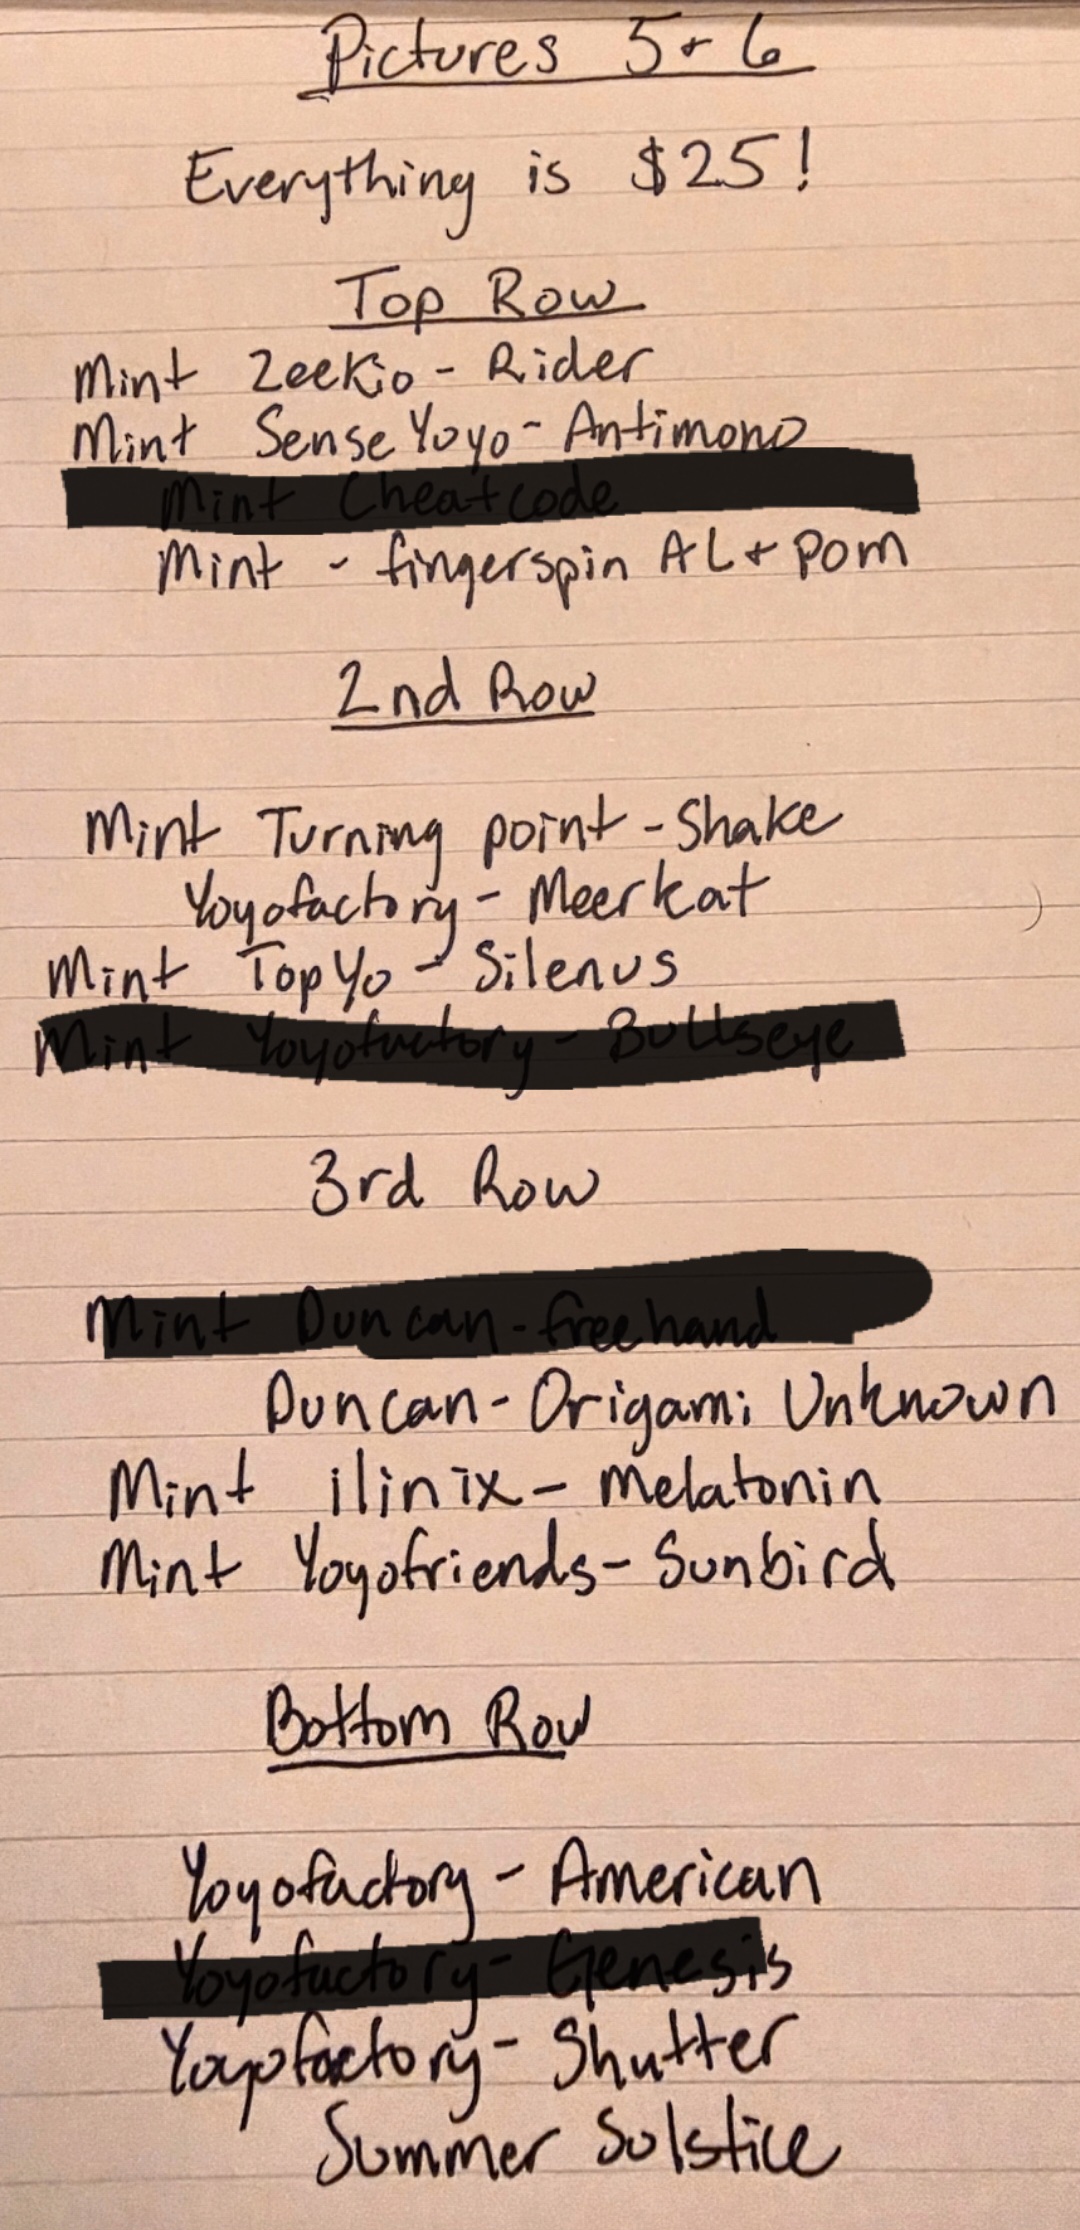 Pictures 5 + 6
Everything is $25!
Top Row
Mint Zeekio - Rider
Mint Sense Yoyo - Antimono
Mint Cheatcode
Mint - fingerspin AL + Pom
2nd Row
Mint Turning point - Shake
Yoyofactory - Meerkat
Mint TopYo - Silenus
Mint Yoyofactory - Bullseye
3rd Row
Mint Duncan - freehand
Duncan - Origami Unknown
Mint ilinix - Melatonin
Mint Yoyofriends - Sunbird
Bottom Row
Yoyofactory - American
Yoyofactory - Genesis
Yoyofactory - Shutter
Summer Solstice